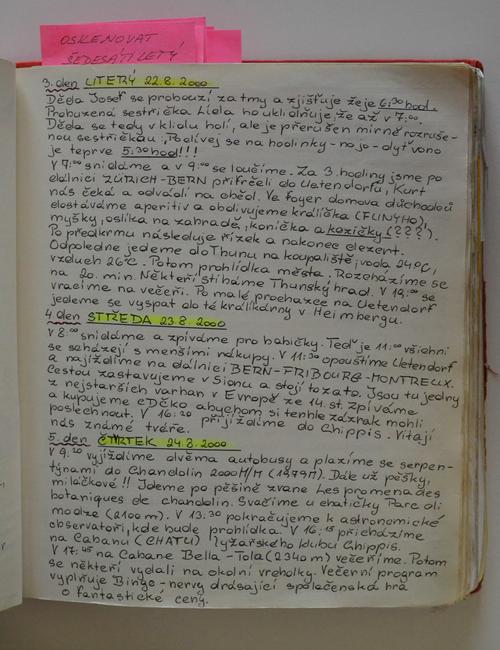 OSKENOVAT
ŠEDESÁTILETÝ
3. den ÚTERÝ 22.8.2000
Děda Josef se probouzí za tmy a zjišťuje žeje 6:30 hod.
Probuzená sestřička Lída ho uklidňuje, že až v 7:00.
Děda se tedy v klidu holí, ale je přerušen mírně rozruše-
nou sestřičkou: "Podívej se na hodinky - no jo - dyť vono
je teprve 5:30 hod!!!
V 7:00 snídáme a v 9:00 se loučíme. Za 3. hodiny jsme po
dálnici ZÜRICH-BERN přifrčeli do Uetendorfu, Kurt
nás čeká a odvádí na oběd. Ve foyer domova důchodců
dostáváme aperitiv a obdivujeme králíčka (FUNYHO),
myšky, oslíka na zahradě, koníčka a kozičky (???).
Po předkrmu následuje řízek a nakonec dezert.
Odpoledne jedeme do Thunu na koupaliště; voda 24°C,
vzduch 26°C. Potom prohlídka města. Rozcházíme se
na 20. min. Někteří stíháme Thunský hrad. V 19:00 se
vracíme na večeři. Po malé procházce na Uetendorf
jedeme se vyspat do té králíkárny v Heimbergu.
4. den STŘEDA 23.8.2000
V 8:00 snídáme a zpíváme pro babičky. Teď je 11:00 všichni
se scházejí s menšími nákupy. V 11:30 opouštíme Uetendorf
a najíždíme na dálnici BERN-FRIBOURG-MONTREUX.
Cestou zastavujeme v Sionu a stojí to zato. Jsou tu jedny
z nejstarších varhan v Evropě ze 14. st. Zpíváme
a kupujeme CDčko abychom si tenhle zázrak mohli
poslechnout. V 16:20 přijíždíme do Chippis. Vítají
nás známé tváře.
5. den ČTVRTEK 24.8.2000
V 9:20 vyjíždíme dvěma autobusy a plazíme se serpen-
týnami do Chandolin 2000M/M (1979M). Dále už pěšky,
miláčkové!! Jdeme po pěšině zvané Les promenades
botaniques de chandolin. Svačíme u chatičky Parc di
modze (2100 m). V 13.30 pokračujeme k astronomické
observatoři, kde bude prohlídka. V 16:15 přicházíme
na Cabanu (CHATU) lyžařského klubu Chippis.
V 17:45 na Cabane Bella-Tola (2340 m) večeříme. Potom
se někteří vydali na okolní vrcholky. Večerní program
vyplňuje Bingo - nervy drásající společenská hra
o fantastické ceny.